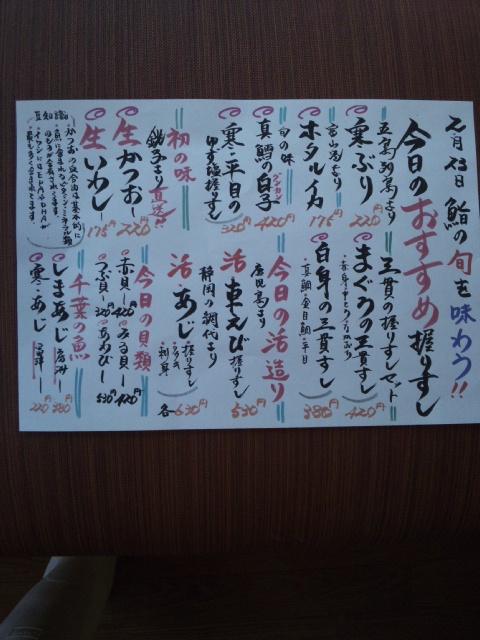 2月23日 鮨の旬を味わう!!
今日のおすすめ握りすし
五島列島より
寒ぶり 220円
富山湾より
ホタルイカ 175円
旬の味
真鱈の白子 グンカン 420円
寒・平目の
ゆず塩握りすし 320円
初の味
銚子より直送!!
生かつお 220円
生いわし 175円
豆知識
三貫の握りすしセット
まぐろの三貫すし 420円
白身の三貫すし 380円
・真鯛・金目鯛・平目
今日の活造り
鹿児島より
活車えび 握りすし 530円
静岡の網代より
活・あじ 握りすし 刺身 各630円
今日の貝類
赤貝 420円
みる貝 420円
つぶ貝 320円
あわび 530円
千葉の魚
しまあじ 380円
寒・あじ 220円